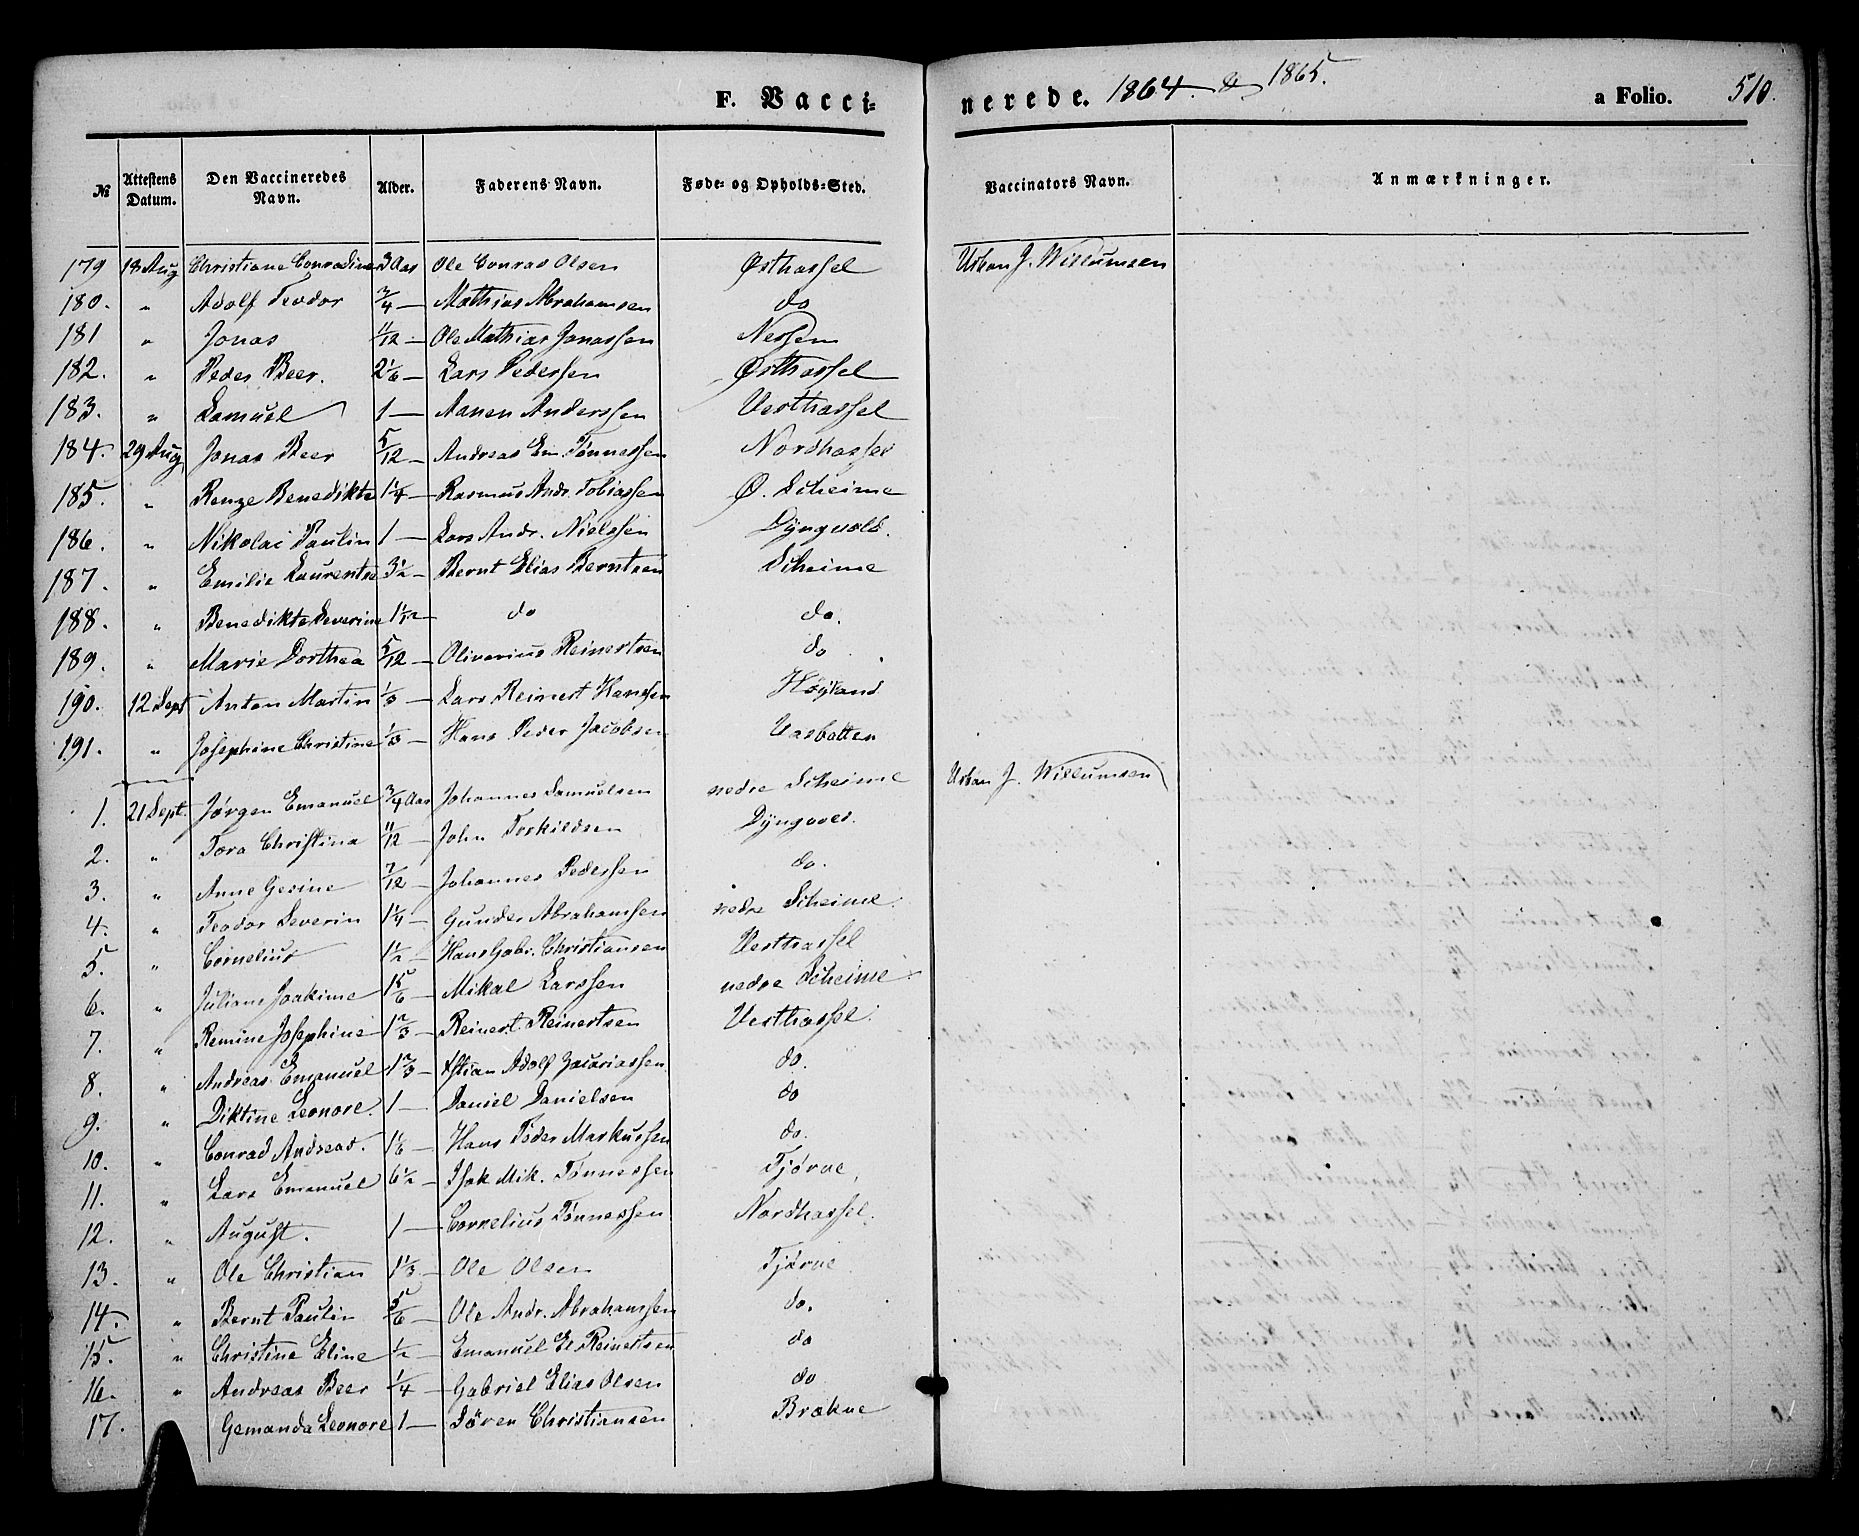 F. Vacci-nerede. 1864 & 1865. a Folio. 510.
№ Attestens Datum. Den Vaccineredes Navn. Alder. Faderens Navn. Føde- og Opholds-Sted. Vaccinators Navn. Anmærkninger.
179 18 Aug Christiane Conradine 3 Aar Ole Conrad Olsen Østhassel Urban J. Willumsen
180. " Adolf Teodor 3/4 — Mathias Abrahamsen do
181 " Jonas 11/12 — Ole Mathias Jonassen Nessem
182. " Peder Beer. 2 1/6 — Lars Pedersen Østhassel
183. " Samuel 1 — Aanen Anderssen Vesthassel
184. 29 Aug Jonas Beer 5/12 — Andreas Em. Tønnessen Nordhassel
185. " Renze Benedikte 1 1/4 — Rasmus Andr. Tobiassen Ø. Scheime
186. " Nikolai Paulin 1 — Lars Andr. Nielssen Dyngvold.
187. " Emilie Laurentse 3 1/2 — Bernt Elias Berntsen Scheime
188. " Benedikte Severine 1 1/12 — do do.
189. " Marie Dorthea 5/12 — Oliverius Reinertsen do
190. 12 Sept Anton Martin 1/3 — Lars Reinert Hanssen Høyland
191. " Josephine Christine 1/3 — Hans Peder Jacobsen Vasbotten
1. 21 Sept. Jørgen Emanuel 3/4 Aar Johannes Samuelsen nedre Scheime Urban J. Willumsen
2. " Tora Christina 11/12 — John Torkildsen Dyngvol.
3. " Anne Gesine 7/12 — Johannes Pederssen do.
4. " Teodor Severin 1 1/4 — Gunder Abrahamssen nedre Scheime.
5. " Cornelius 1 1/2 — Hans Gabr. Christiansen Vesthassel
6. " Juliane Joakime 1 5/6 — Mikal Larssen nedre Scheime
7. " Remine Josephine 1 2/3 — Reinert Reinertsen Vesthassel.
8. " Andreas Emanuel 1 2/3 — Stian Adolf Zacariassen do.
9. " Diktine Leonore. 1 — Daniel Danielsen do
10. " Conrad Andreas. 1 1/6 — Hans Peder Markussen do.
11. " Lars Emanuel 6 1/2 — Isak Mik. Tønnessen Tjørve,
12. " August. 1 — Cornelius Tønnessen Nordhassel.
13. " Ole Christian 1 1/3 — Ole Olsen Tjørve
14. " Bernt Paulin 5/6 — Ole Andr. Abrahamssen do.
15. " Christine Eline 1/2 — Emanuel El. Reinertsen do
16. " Andreas Beer 1/4 — Gabriel Elias Olsen do
17. Gemanda Leonore 1 — Søren Christiansen Brækne